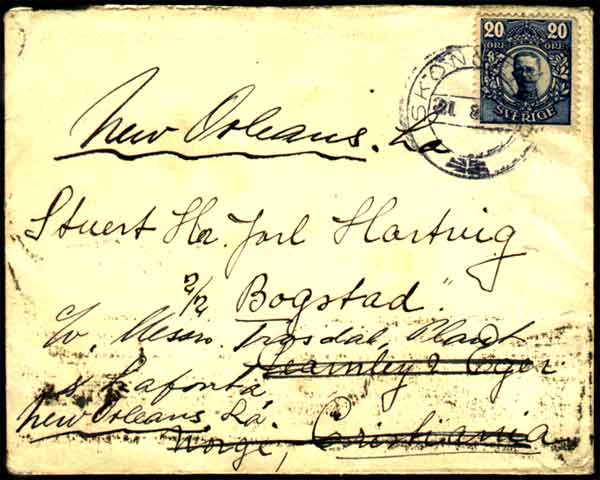 20 20
ÖRE ÖRE
SVERIGE
21 8
New Orleans. La
Stuert Hr. Jarl Hartvig
Bogstad"
c/o, Messrs. Trosdal, Plant
Fearnley & Eger
& Lafonta,
New Orleans La.
Norge, Cristiania